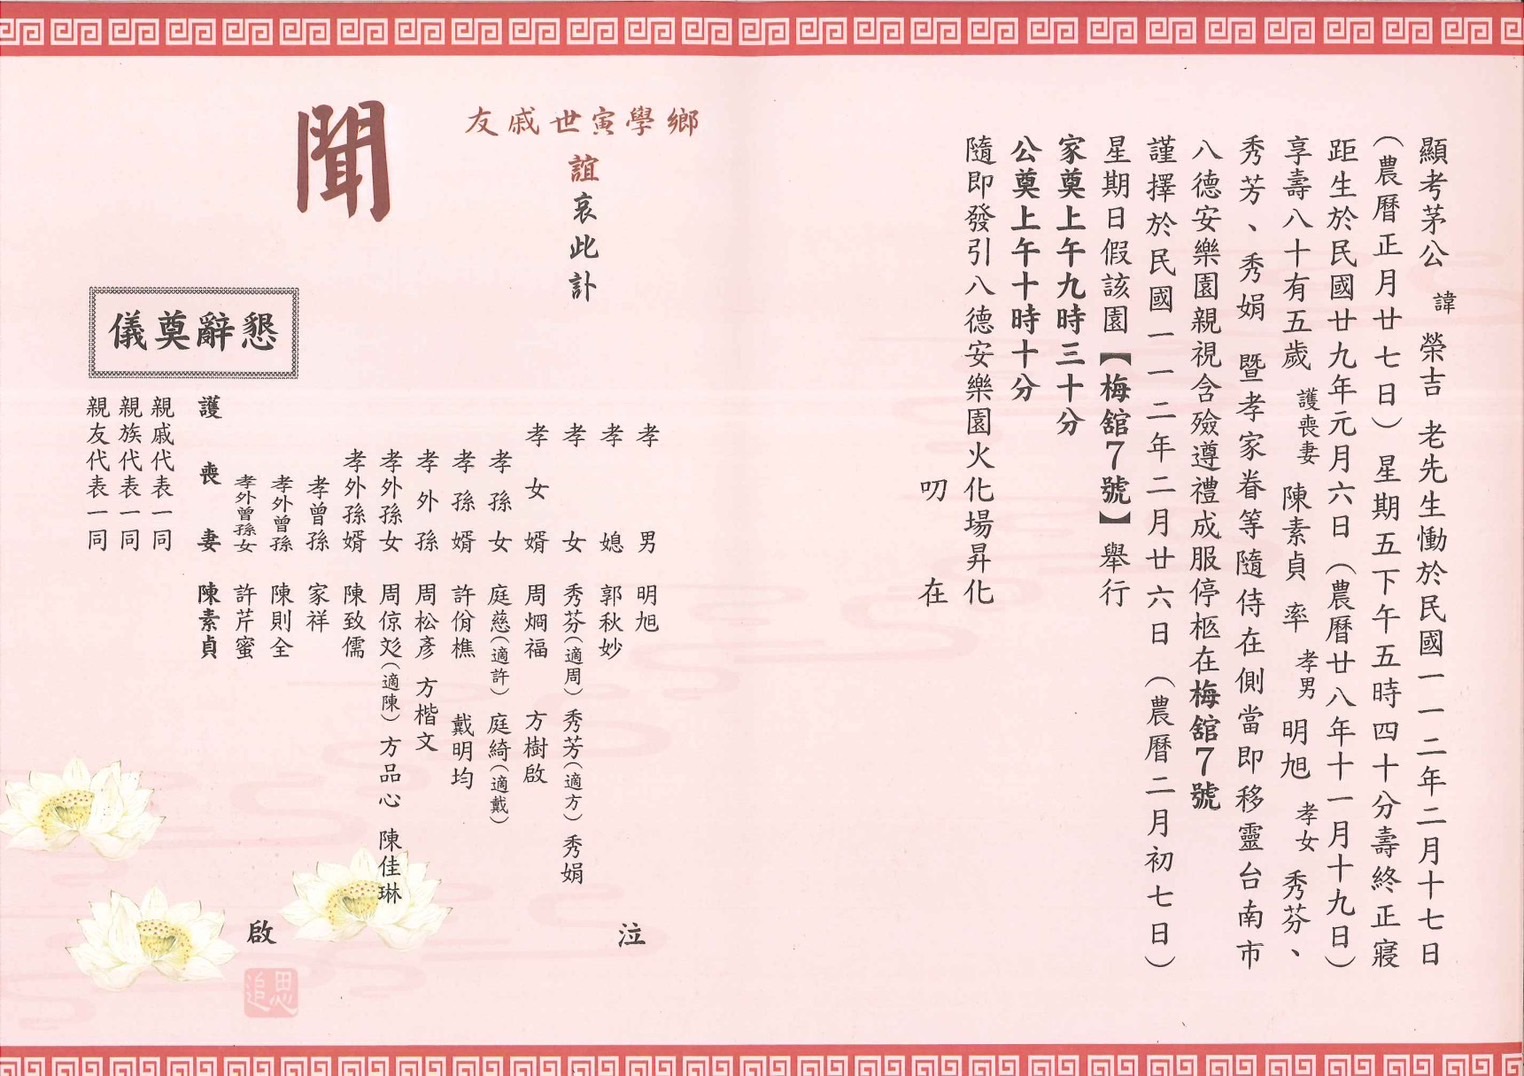 顯考茅公諱榮吉老先生慟於民國一一二年二月十七日
（農曆正月廿七日）星期五下午五時四十分壽終正寢
距生於民國廿九年元月六日（農曆廿八年十一月十九日）
享壽八十有五歲護喪妻陳素貞率孝男明旭孝女秀芬、
秀芳、秀娟暨孝家眷等隨侍在側當即移靈台南市
八德安樂園親視含殮遵禮成服停柩在梅舘7號
謹擇於民國一一二年二月廿六日（農曆二月初七日）
星期日假該園【梅舘7號】舉行
家奠上午九時三十分
公奠上午十時十分
隨即發引八德安樂園火化場昇化
叨在
鄉學寅世戚友
誼哀此訃
聞
孝男明旭
孝媳郭秋妙
孝女秀芬（適周）秀芳（適方）秀娟
孝女婿周烱福方樹啟
孝孫女庭慈（適許）庭綺（適戴）
孝孫婿許佾樵戴明均
孝外孫周松彥方楷文
孝外孫女周倞彣（適陳）方品心陳佳琳
孝外孫婿陳致儒
孝曾孫家祥
孝外曾孫陳則全
孝外曾孫女許芹蜜
護喪妻陳素貞
泣啟
親戚代表一同
親族代表一同
親友代表一同
懇辭奠儀
追思